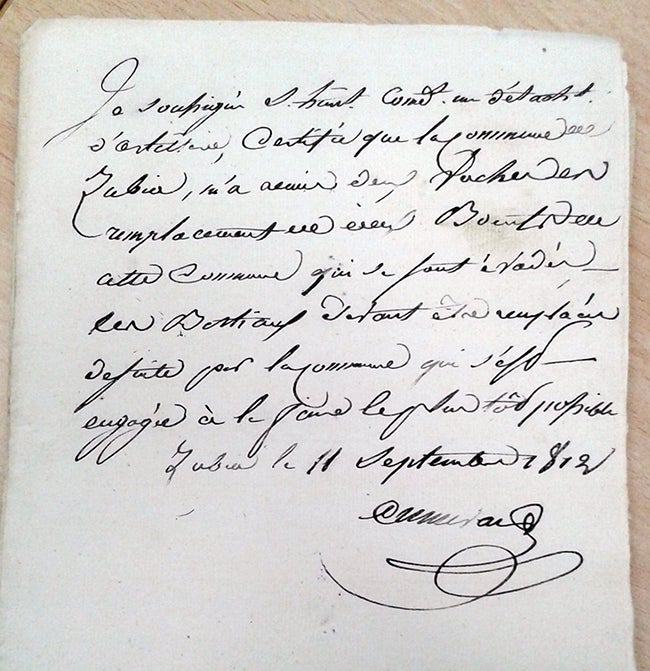 Je soussigné Lt. Comdt. un détacht.
d'artillerie, Certifie que la Commune de
Zubia, m'a remis deux Vaches en
remplacement de deux Boeufs de
cette Commune qui se sont évadés
les Bestiaux devant être remplacés
de suite par la Commune qui s'est
engagée à le faire le plus tôt possible
Zubia le 11 Septembre 1812